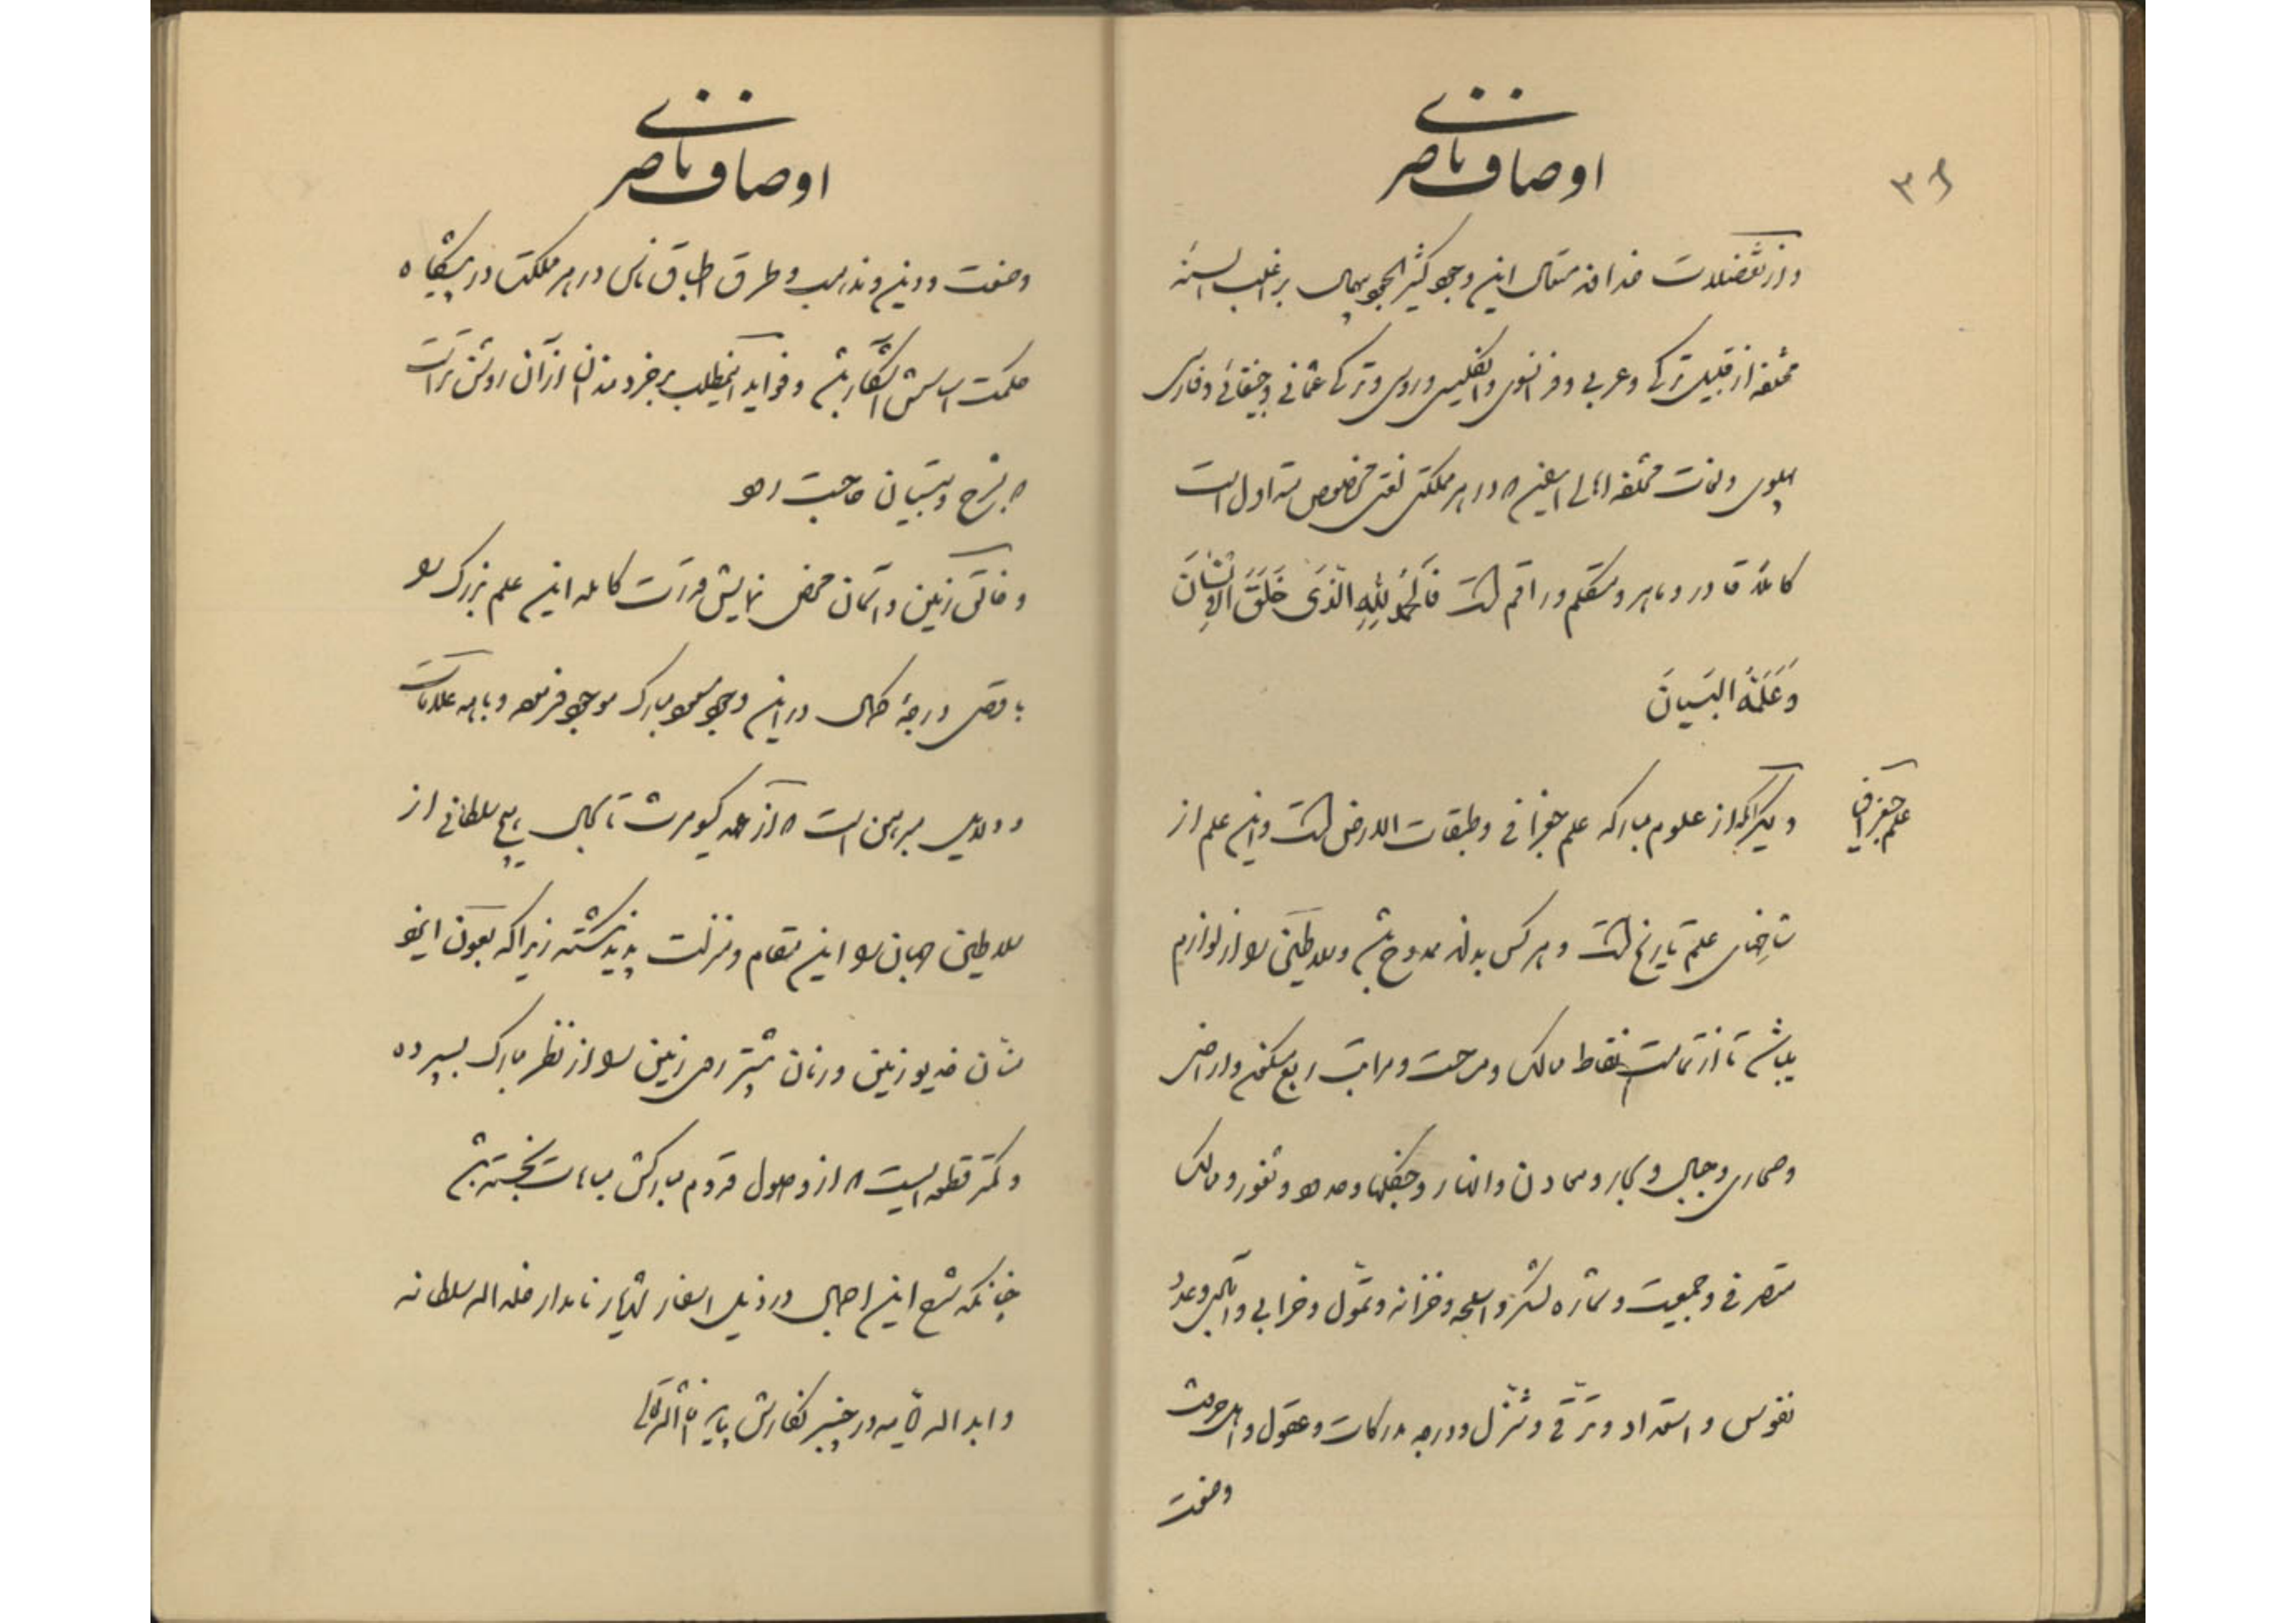 ۳۸
اوصاف ناصری
و از تفضلات خداوند متعال این وجود کثیر الجود همال بر اغلب السنه
مختلفه از قبیل ترکی و عربی و فرانسوی و انگلیسی و روسی و ترکی عثمانی و جغتائی و فارسی
پهلوی و لغات مختلفه اهالی که در هر مملکتی لغتی مخصوص متداول است
کاملاً قادر و ماهر و متکلم و راقم است فَالحَمدُ لِلّهِ الَّذی خَلَقَ الاِنسَانَ
وَ عَلَّمَهُ البَیَانَ
علم جغرافی
و دیگر آنکه از علوم مبارکه علم جغرافی و طبقات الارض است و این علم از
شاخهای علم تاریخ است و هر کس بداند ممدوح باشد و سلاطین را از لوازم
میباشد تا از تمامت نقاط ممالک و مساحت و مراتب ربع مسکون و اراضی
و صحاری و جبال و بحار و معادن و انهار و جنگلها و حدود و ثغور و ممالک
متصرفی و جمعیت و شماره لشکر و اسلحه و خزانه و تموّل و خرابی و آبادی و عدد
نفوس و استعداد و ترقی و تنزل و درجه مدرکات و عقول و اهل حرفت
وصنعت
اوصاف ناصری
وصنعت و دین و مذهب و طرق اطباق ناس در هر مملکت در پیشگاه
حکمت اساسش آشکار باشد و فواید اینمطلب بر خردمندان از آن روشن تر است
که بشرح و تبیان حاجت رود
و خالق زمین و آسمان محض نمایش قدرت کامله این علم بزرگ را
باقصی درجهٔ کمال در این وجود مسعود مبارک موجود فرموده و با همه علامات
و دلایل مبرهن است که از عهد کیومرث تا بحال هیچ سلطانی از
سلاطین جهان را این مقام و منزلت پدید نگشته زیرا که بعون ایزد
منّان خدیو زمین و زمان بیشتر روی زمین را از نظر مبارک سپرده
و کمتر قطعه ایست که از وصول قدوم مبارکش مباهات نجسته باشد
چنانکه شرح این اجمال در ذیل اسفار شهریار نامدار خلد الله سلطانه
و ابد الله در خیر نگارش یابد انشاءالله تعالی